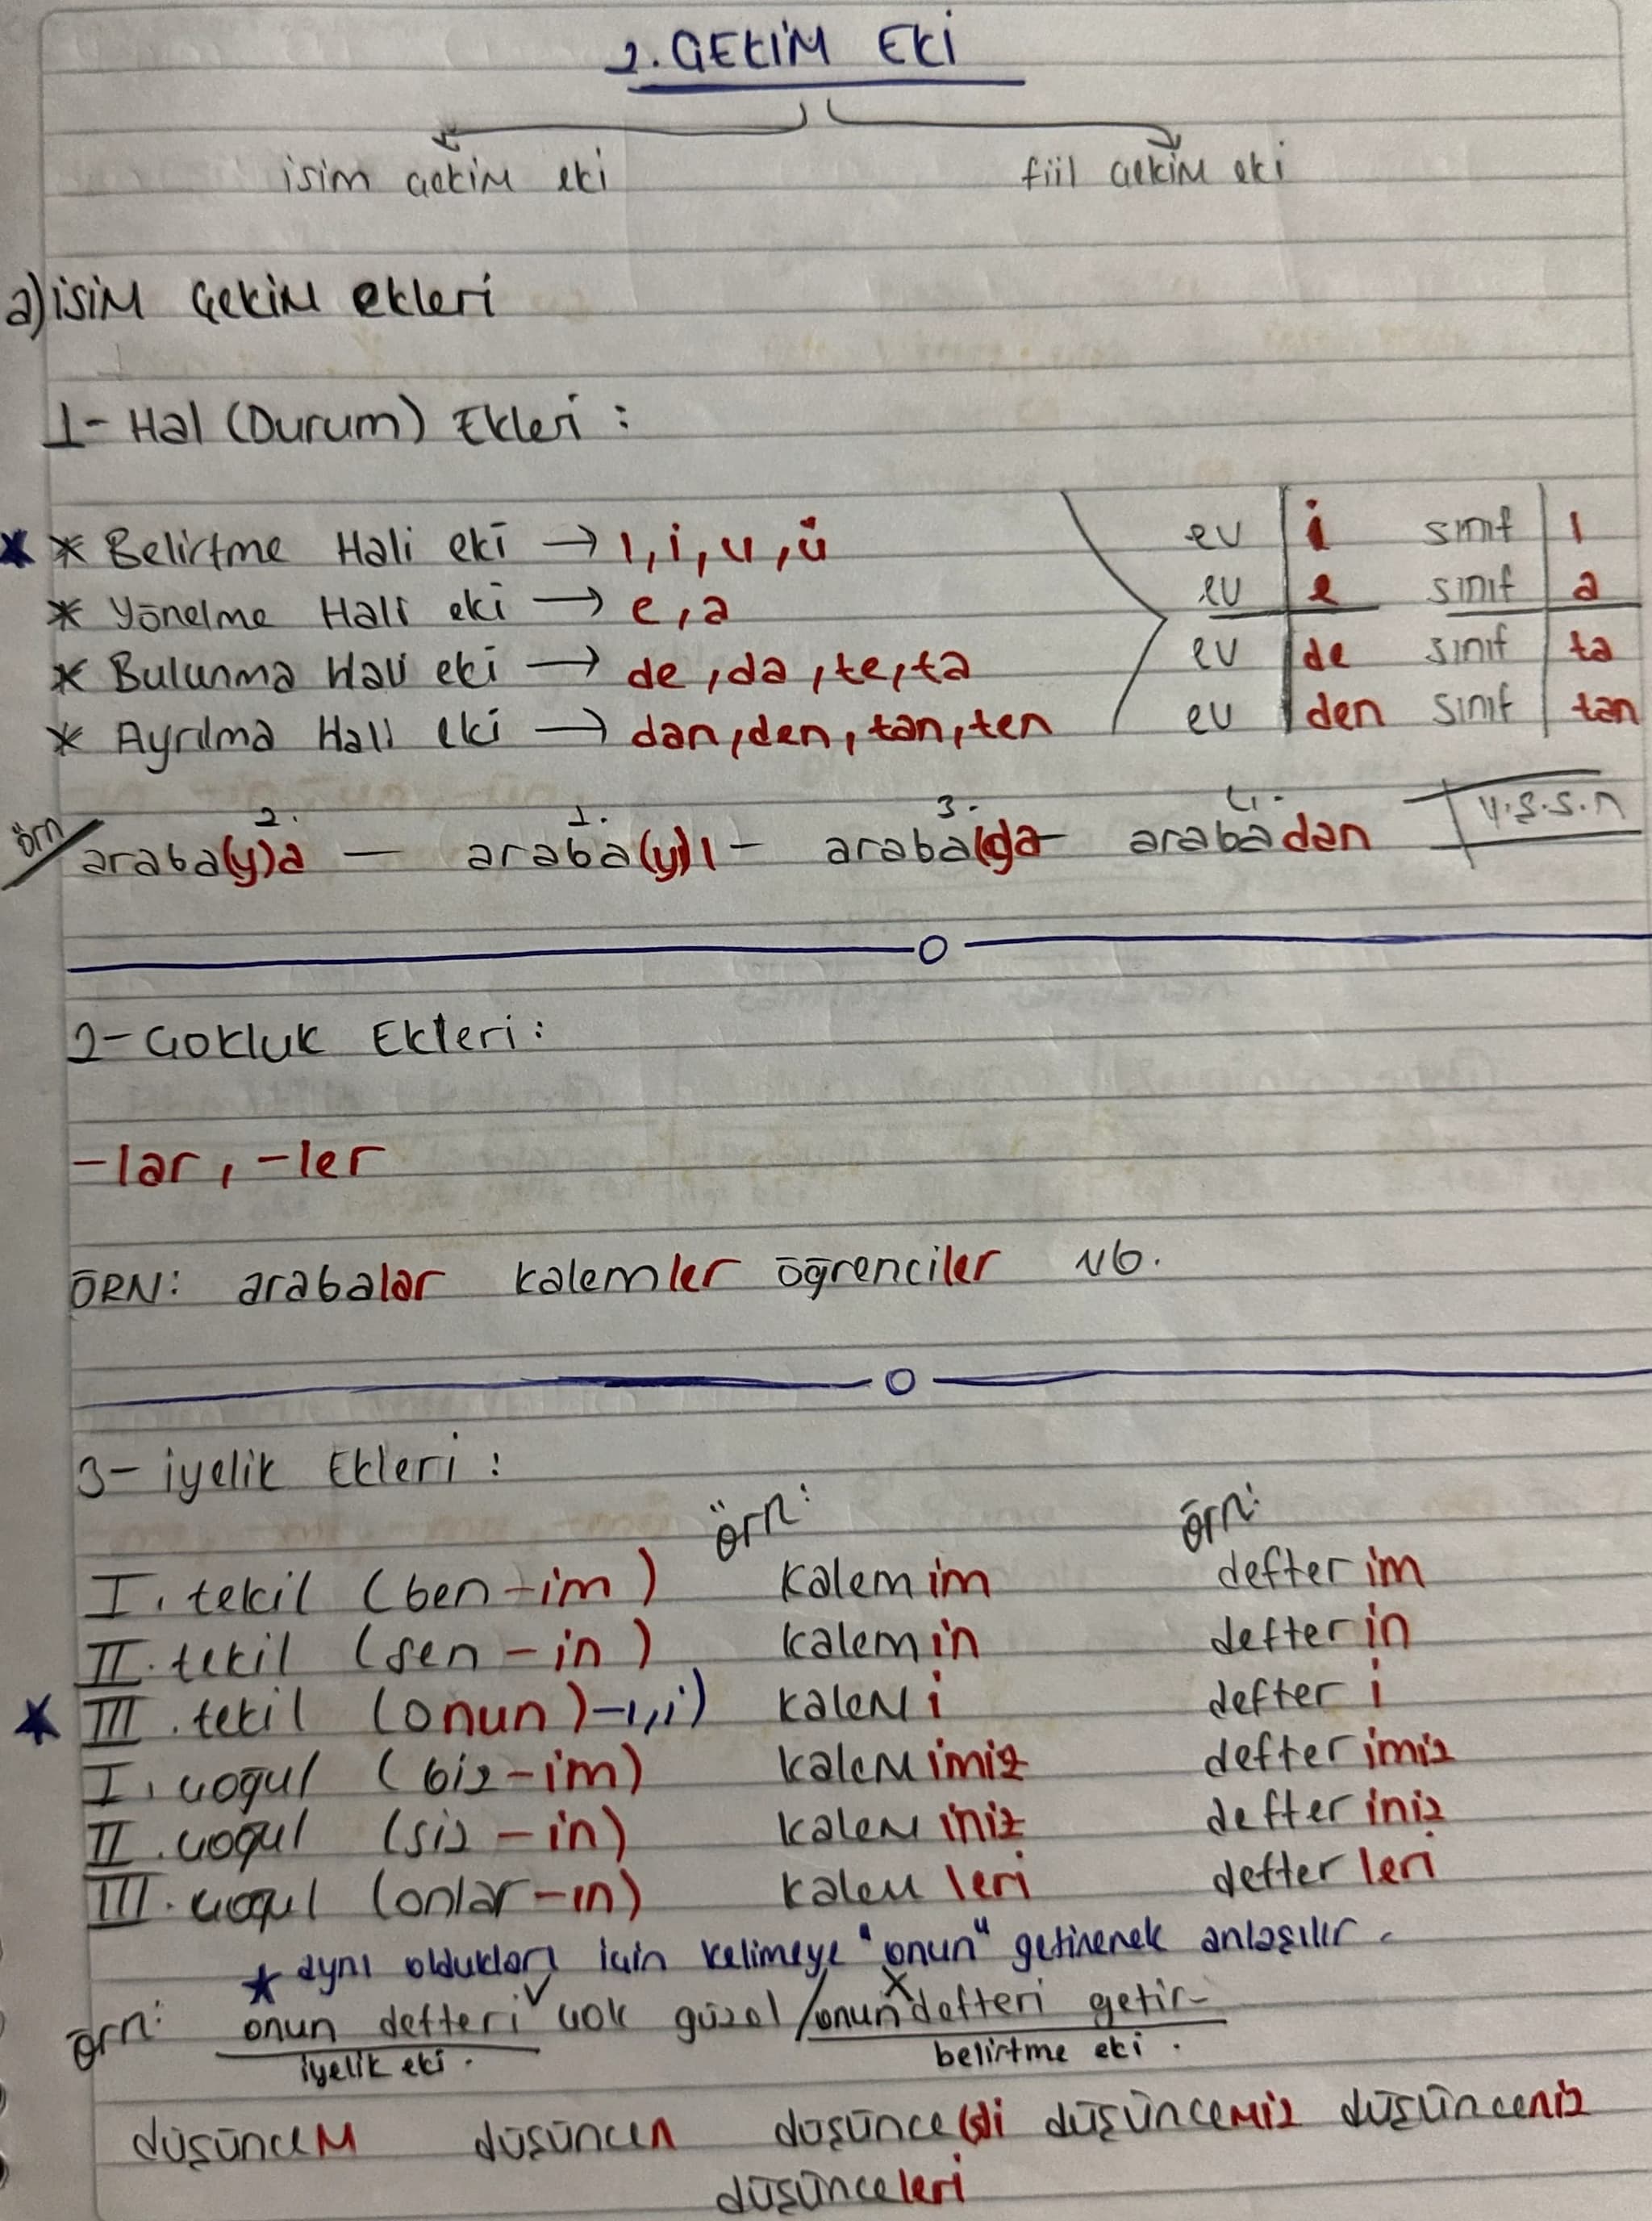 2. ÇEKİM EKİ
isim çekim eki fiil çekim eki
a) isim çekim ekleri
1- Hal (Durum) Ekleri :
* Belirtme Hali eki → ı, i, u, ü ev i sınıf ı
* Yönelme Hali eki → e, a ev e sınıf a
* Bulunma Hali eki → de, da, te, ta ev de sınıf ta
* Ayrılma Hali eki → dan, den, tan, ten ev den sınıf tan
2. 1. 3. 4.
örn/ araba(y)a — araba(y)ı - arabada - arabadan Y.Ş.S.N
2- Çokluk Ekleri :
-lar, -ler
ÖRN: arabalar kalemler öğrenciler vb.
3- iyelik Ekleri :
örn: örn:
I. tekil (ben -im) kalem im defter im
II. tekil (sen -in) kalem in defter in
III. tekil (onun) -ı,i) kalem i defter i
I. çoğul (biz -im) kalem imiz defter imiz
II. çoğul (siz -in) kalem iniz defter iniz
III. çoğul (onlar -ın) kalem leri defter leri
* aynı oldukları için kelimeye "onun" getirerek anlaşılır.
örn: onun defteri ✓ çok güzel / onun x defteri getir-
iyelik eki. belirtme eki.
düşüncem düşüncen düşünce(s)i düşüncemiz düşünceniz
düşünceleri